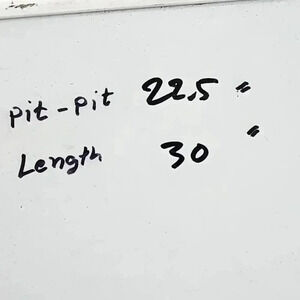 pit-pit 22.5 "
Length 30 "